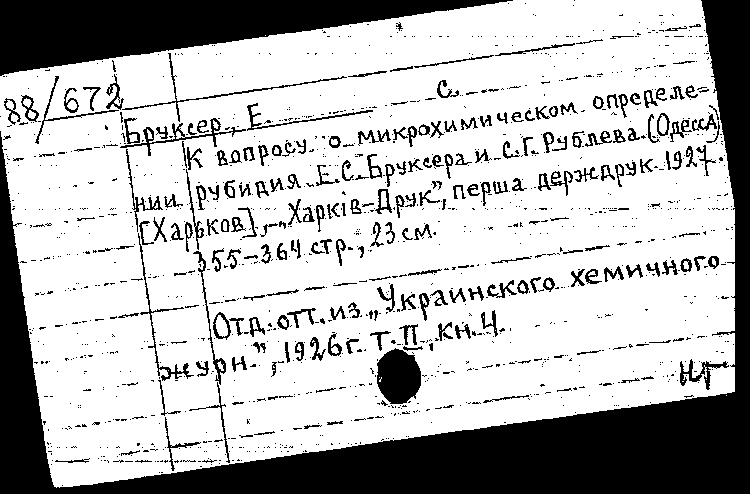 88/672
Бруксер, Е. С.
К вопросу о микрохимическом определе-
нии рубидия Е.С. Бруксера и С.Г. Рублева (Одесса)
[Харьков], „Харкiв-Друк", перша держдрук 1927.
355-364 стр., 23 см.
Отд. отт. из „Украинского хемичного
журн.", 1926 г. Т. II, кн. 4.
НГ